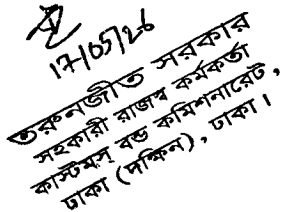 17/05/26
তরুনজীত সরকার
সহকারী রাজস্ব কর্মকর্তা
কাস্টমস্ বন্ড কমিশনারেট,
ঢাকা (দক্ষিন), ঢাকা।